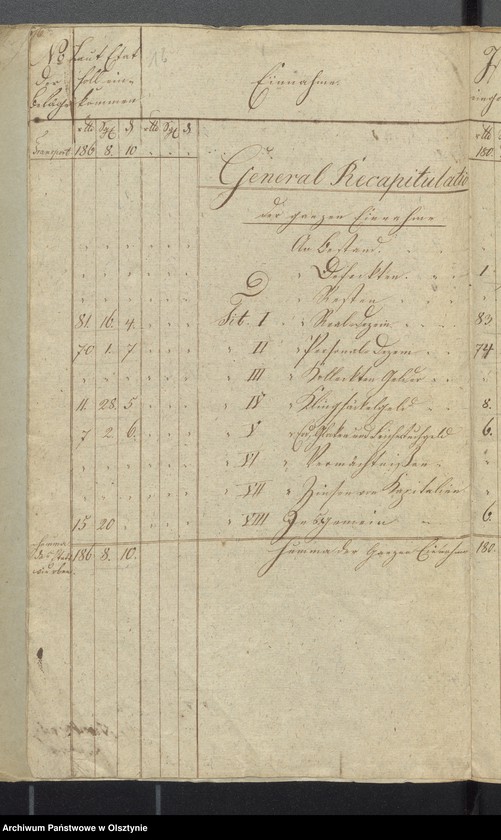 No Laut Etat
der soll ein-
Beläge kommen
Einnahme
16
rtl Sgl d rtl Sgl d
Transport 186 8. 10 180.
General Recapitulatio
der ganzen Einnahme
An Bestand
" Defecten 1
" Resten
81. 16. 4. Tit. I " Realdezem 83
70 1. 7 " II " Personaldezem 74
" III " Kollecten Gelder
11. 28. 5 " IV " Klingsäckelgeld 8.
7 2 6. " V 6.
" VI " Vermächtnißen
" VII " Zinsen von Kapitalien
15 20 " VIII Insgemein 6.
Summa
des Etats 186 8. 10. Summa der ganzen Einnahme 180.
wie oben.
Archiwum Państwowe w Olsztynie